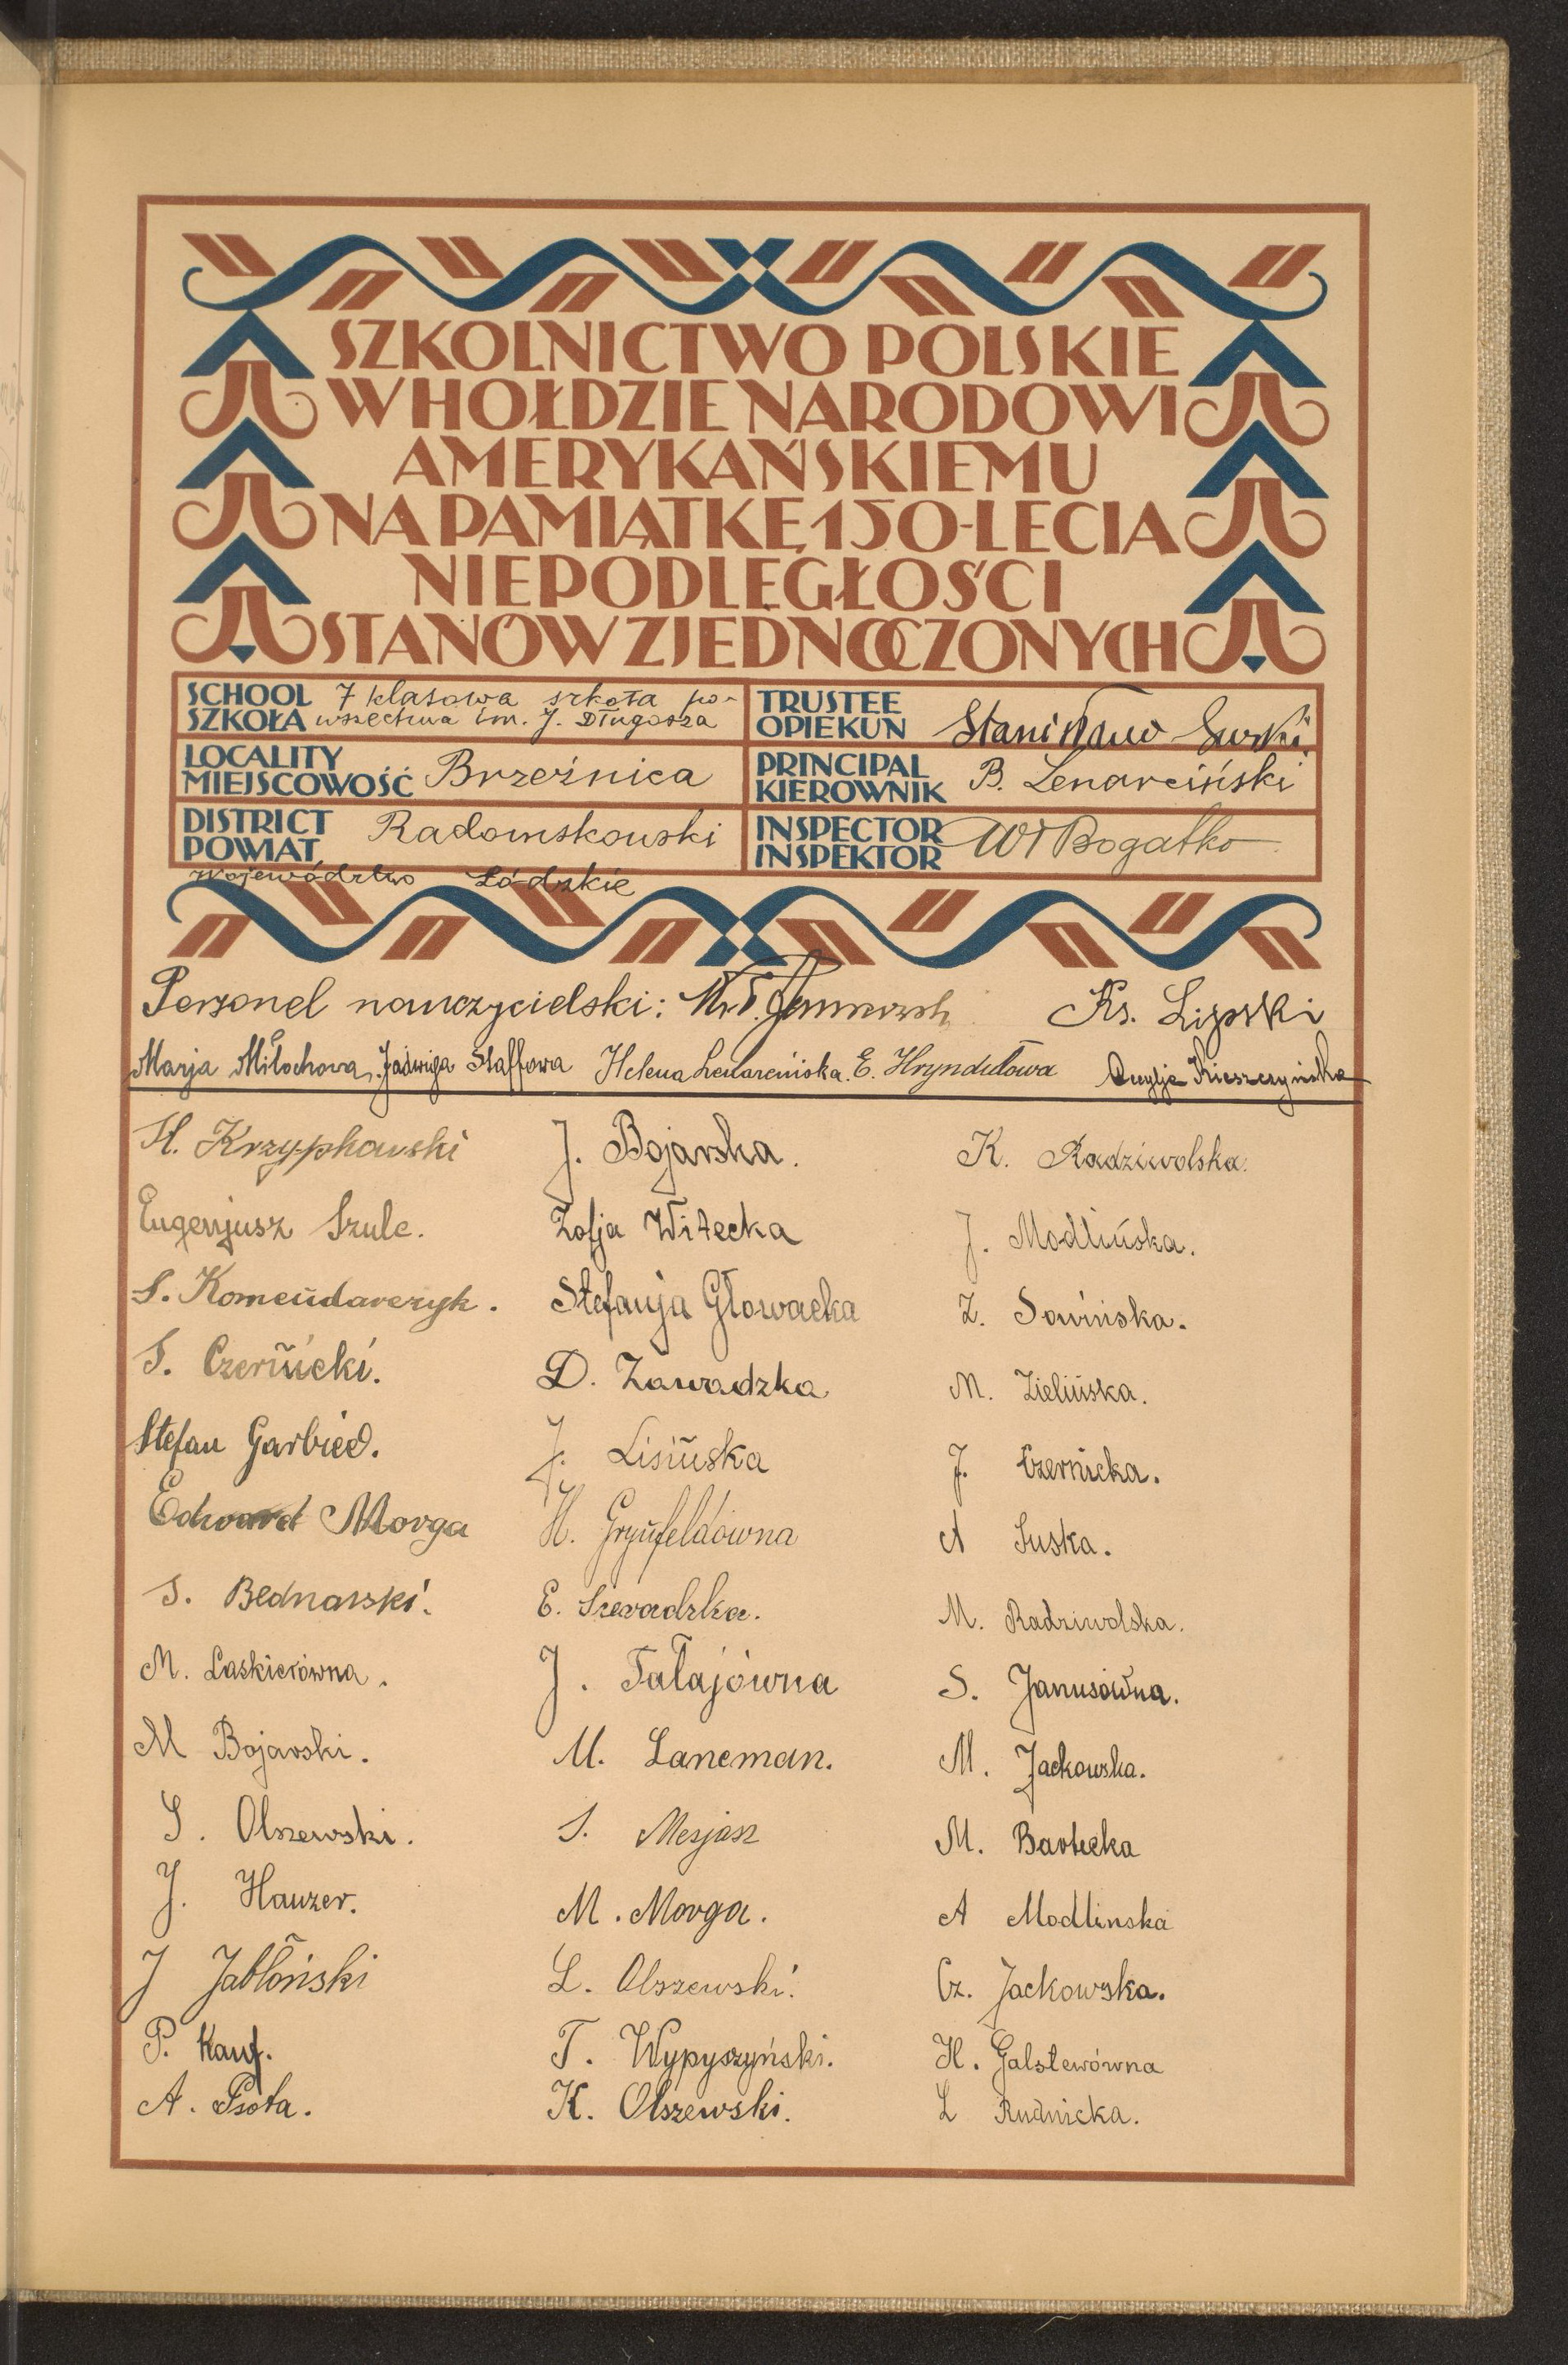 SZKOLNICTWO POLSKIE
W HOŁDZIE NARODOWI
AMERYKAŃSKIEMU
NA PAMIĄTKĘ 150-LECIA
NIEPODLEGŁOŚCI
STANÓW ZJEDNOCZONYCH
SCHOOL SZKOŁA 7 klasowa szkoła po-
wszechna im. J. Długosza
TRUSTEE OPIEKUN Stanisław
LOCALITY MIEJSCOWOŚĆ Brzeźnica
PRINCIPAL KIEROWNIK B. Lenarciński
DISTRICT POWIAT Radomskowski
INSPECTOR INSPEKTOR Wł Bogatko
Województwo Łódzkie
Personel nauczycielski: Ks. Lipski
Marja Miłochowa, Jadwiga Staffowa Helena Lenarcińska. E. Hryndułowa Kieszczyńska
H. Krzypkowski
Eugenjusz Szulc.
S. Komeńdarczyk.
S. Czernicki.
Stefan Garbiec.
Edward Morga
S. Bednarski.
M. Laskierówna.
M Bojarski.
S. Olszewski.
J. Hauzer.
J Jabłoński
P. Kauf.
A. Psota.
J. Bojarska.
Zofja Witecka
Stefanja Głowacka
D. Zawadzka
J. Lisińska
H. Grynfeldówna
E. Szwadzka.
J. Tałajówna
M. Laneman.
S. Mesjasz
M. Morga.
L. Olszewski.
T. Wypyszyński.
K. Olszewski.
K. Radziwolska.
J. Modlińska.
Z. Sowińska.
M. Zielińska.
J. Czernicka.
A Suska.
M. Radziwolska.
S. Janusówna.
M. Jackowska.
M. Bartecka
A Modlinska
Cz. Jackowska.
H. Galstewówna
L Rudnicka.